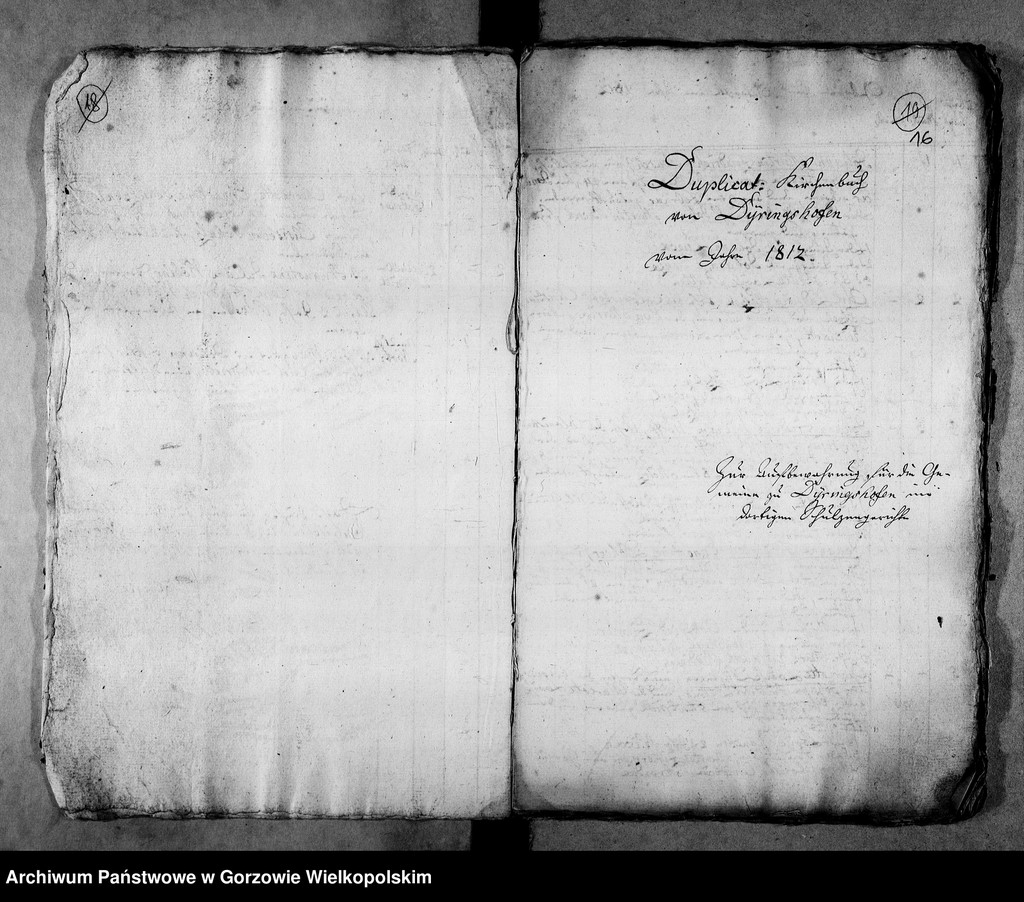 18
19
16
Duplicat: Kirchenbuch
von Dÿringshofen
vom Jahre 1812.
Zur Aufbewahrung für die Ge-
meine zu Dÿringshofen im
dortigen Schulzengericht
Archiwum Państwowe w Gorzowie Wielkopolskim